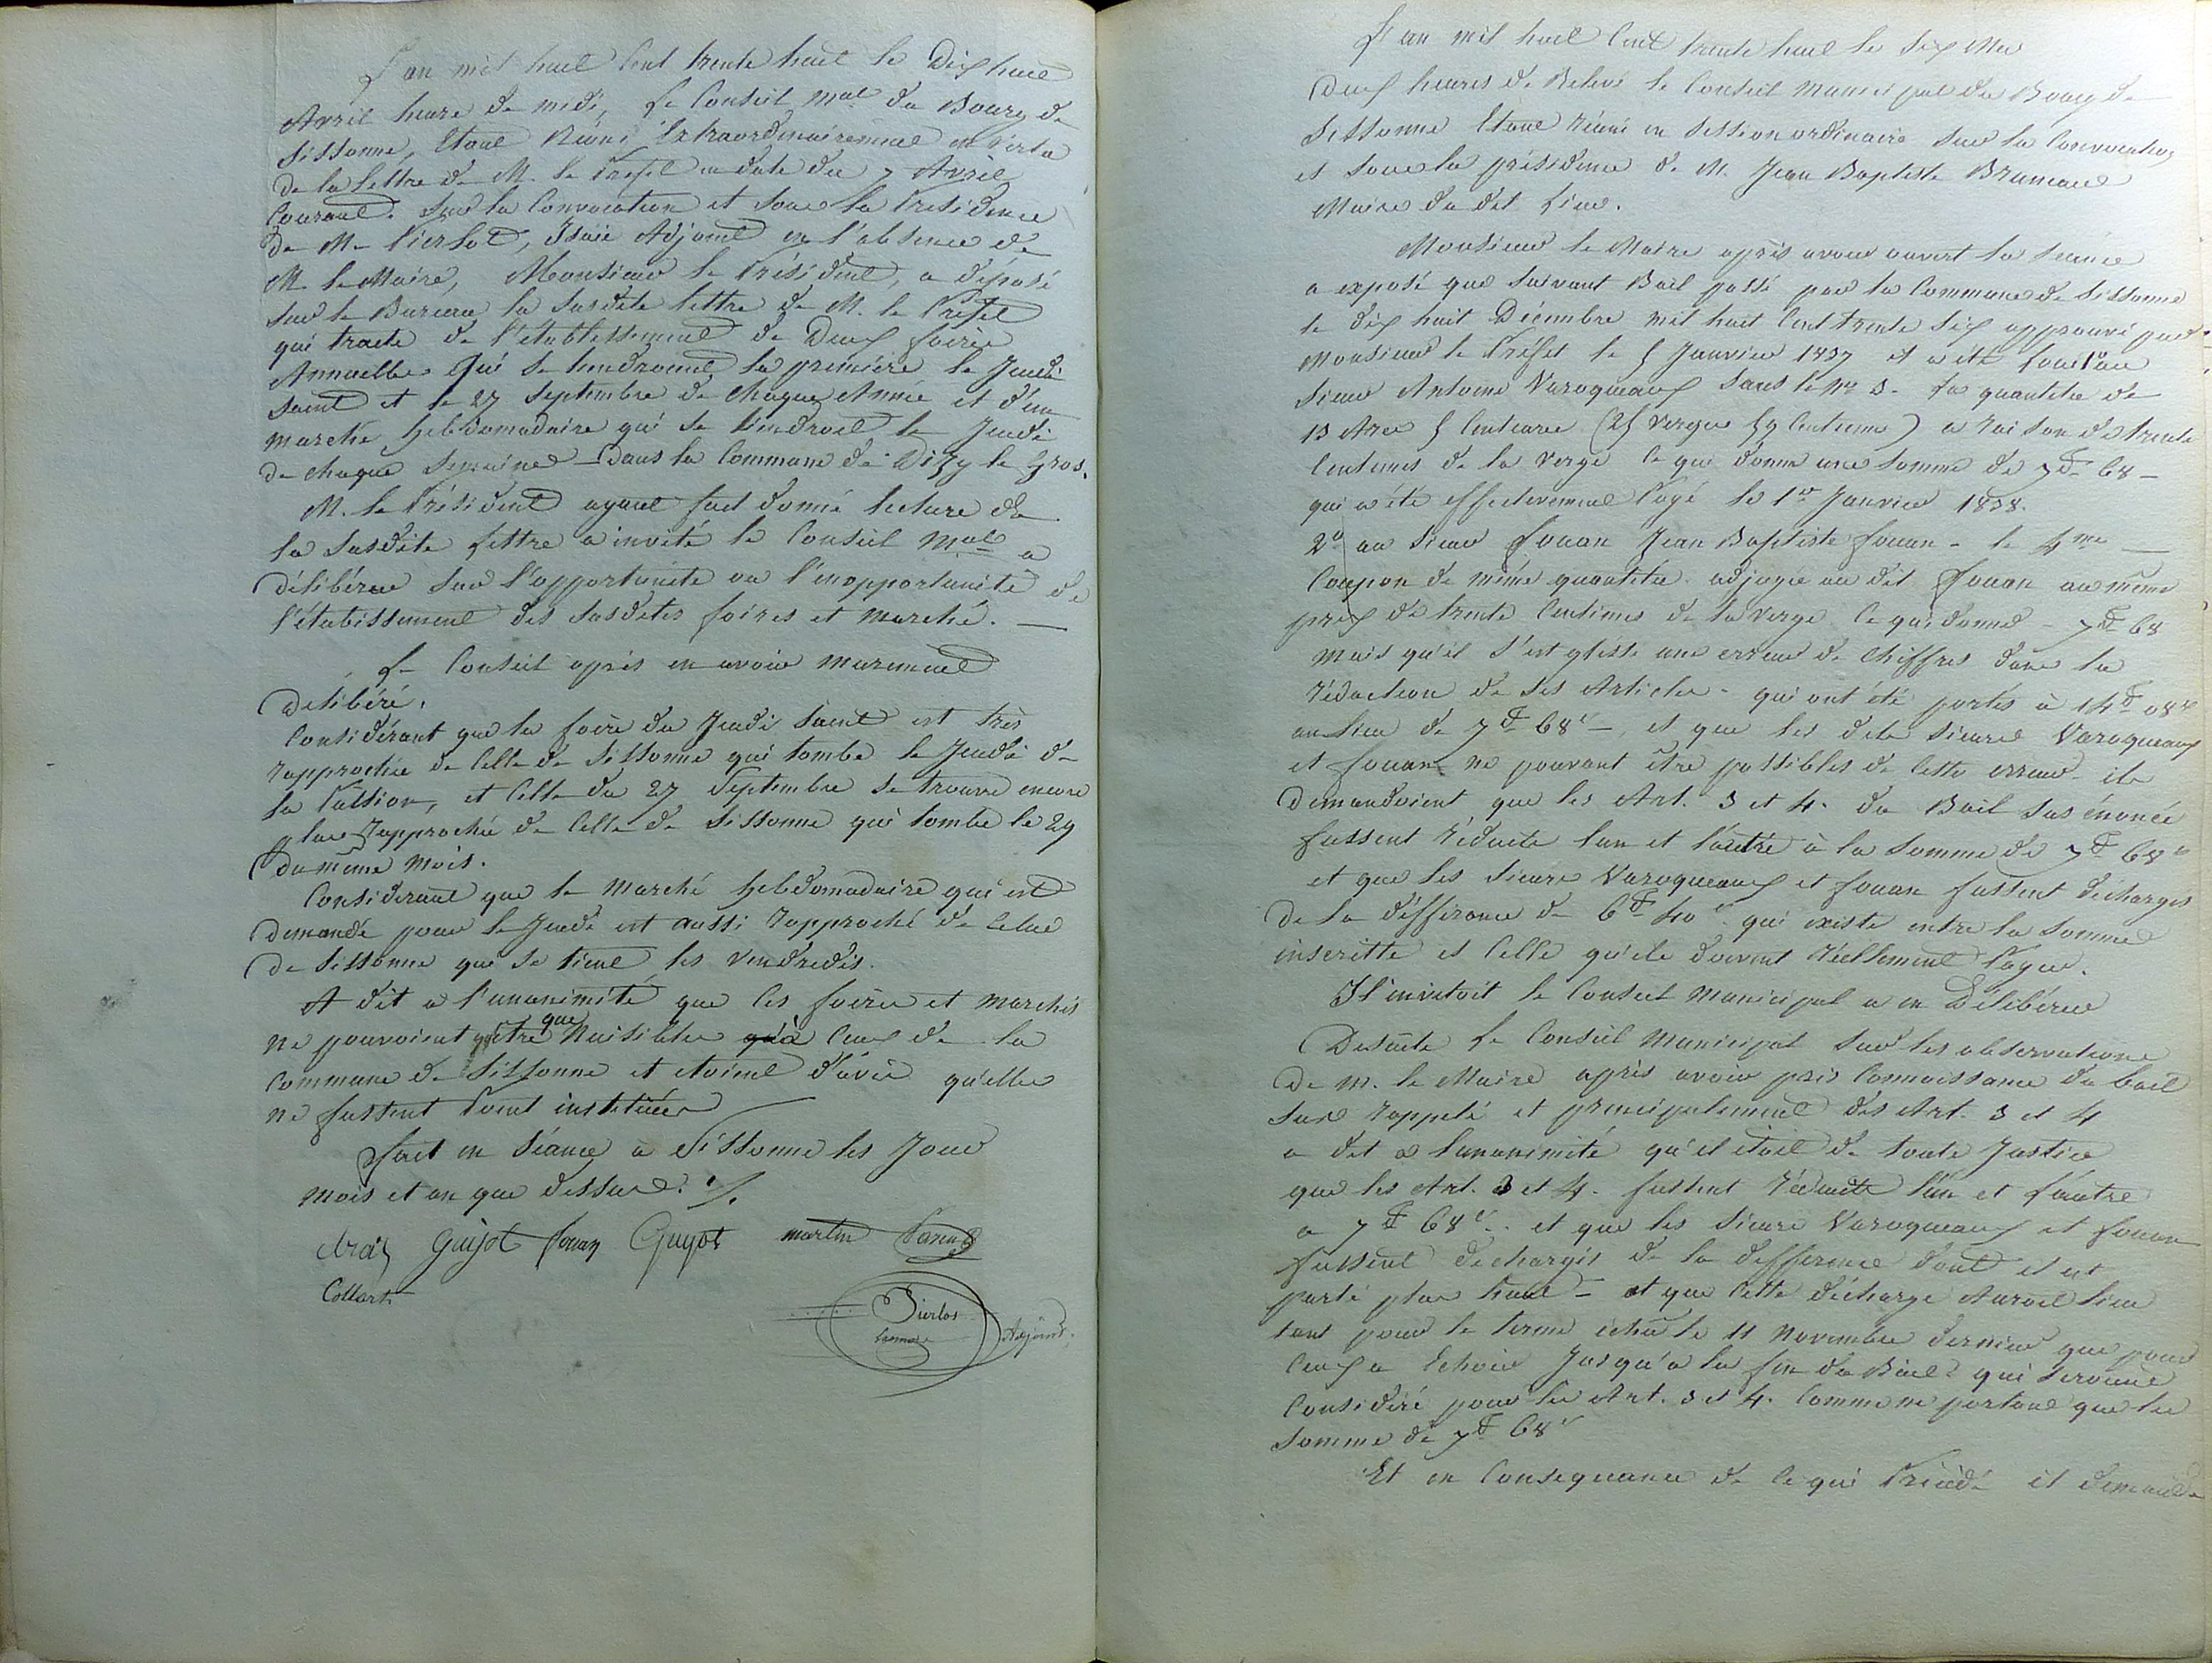 L'an mil huit Cent trente huit le Dix huit
Avril heure de midi, Le Conseil Mal du Bourg de
Sissonne, Etant Réuni Extraordinairement en vertu
de la Lettre de M. le Préfet en date du 7 Avril
Courant. Sur la Convocation et sous la Présidence
de M. Pierlot, Isaïe Adjoint en l'absence de
M. le Maire, Monsieur le Président, a déposé
sur le Bureau la susdite lettre de M. le Préfet
qui traite de l'établissement de Deux foires
Annuelles qui se tiendroient la première le Jeudi
saint et le 27 septembre de chaque Année et d'un
marché hebdomadaire qui se tiendroit le Jeudi
de chaque semaine – dans la Commune de Dizy le Gros.
M. le Président ayant fait donné lecture de
la susdite Lettre a invité le Conseil Mal a
délibérer sur l'opportunité ou l'inopportunité de
l'établissement des susdites foires et marché. —
Le Conseil après en avoir murement
Délibéré,
Considérant que la foire du Jeudi saint est très
rapprochée de Celle de Sissonne qui tombe le Jeudi de
la Passion, et Celle du 27 Septembre se trouve encore
plus rapprochée de Celle de Sissonne qui tombe le 29
du même mois.
Considerant que le marché hebdomadaire qui est
demandé pour le Jeudi est aussi rapproché de Celui
de Sissonne qui se tient les Vendredis.
A dit a l'unanimité que les foires et marchés
ne pouvoient être que Nuisibles qu'à Ceux de la
Commune de Sissonne et étoient d'avis qu'elles
ne fussent Point instituées
Fait en Séance a Sissonne les Jour
mois et an que dessus. ./.
Guyot Fouan Guyot martin
Collart
Pierlot
Adjoint.
L'an mil huit Cent trente huit le Six Mai
Deux heures de Relevé le Conseil Municipal du Bourg de
Sissonne Etant réuni en Session ordinaire sur la Convocation
et sous la présidence de M. Jean Baptiste Bruneau
Maire du dit Lieu.
Monsieur le Maire après avoir ouvert la séance
a exposé que suivant Bail passé par la Commune de Sissonne
le dix huit Décembre mil huit Cent trente six approuvé par
Monsieur le Préfet le 5 Janvier 1837 il a été loué 1° au
Sieur Antoine Varoqueaux sous le No 3. la quantité de
13 Ares 5 Centiares (25 verges 59 Centiemes) a raison de trente
Centimes de la verge Ce qui donne une somme de 7f 68 –
qui a été effectivement Payé le 1er Janvier 1838.
2° au Sieur Fouan Jean Baptiste Fouan – le 4me —
Coupon de même quantité adjugé au dit Fouan au même
prix de trente Centimes de la verge Ce qui donne – 7f 68
Mais qu'il s'est glissé une erreur de Chiffres dans la
rédaction de ses Articles – qui ont été portés à 14f 08c
au lieu de 7f 68c – et que les dits Sieurs Varoqueaux
et Fouan ne pouvant être passibles de Cette erreur – ils
demandoient que les Art. 3 et 4. du Bail sus énoncé
fussent réduits l'un et l'autre à la somme de 7f 68c
et que les Sieurs Varoqueaux et Fouan fussent déchargés
de la différance de 6f 40c qui existe entre la somme
inscritte et Celle qu'ils doivent réellement Payer.
Il invitoit le Conseil Municipal a en Délibérer
Desuite Le Conseil Municipal sur les observations
de M. le Maire après avoir pris Connoissance du bail
sus rappelé et principalement des Art. 3 et 4
a dit a l'unanimité qu'il étoit de toute Justice
que les Art. 3 et 4. fussent réduits l'un et l'autre
a 7f 68c – et que les Sieurs Varoqueaux et Fouan
fussent dechargés de la difference dont il est
parlé plus haut – et que Cette décharge Auroit lieu
tant pour le terme échu le 11 Novembre dernier que pour
Ceux a Echoir Jusqu'a la fin du Bail qui seroient
Considéré pour les Art. 3 et 4. Comme ne portant que la
somme de 7f 68c
Et en Consequance de Ce qui Précède il demande